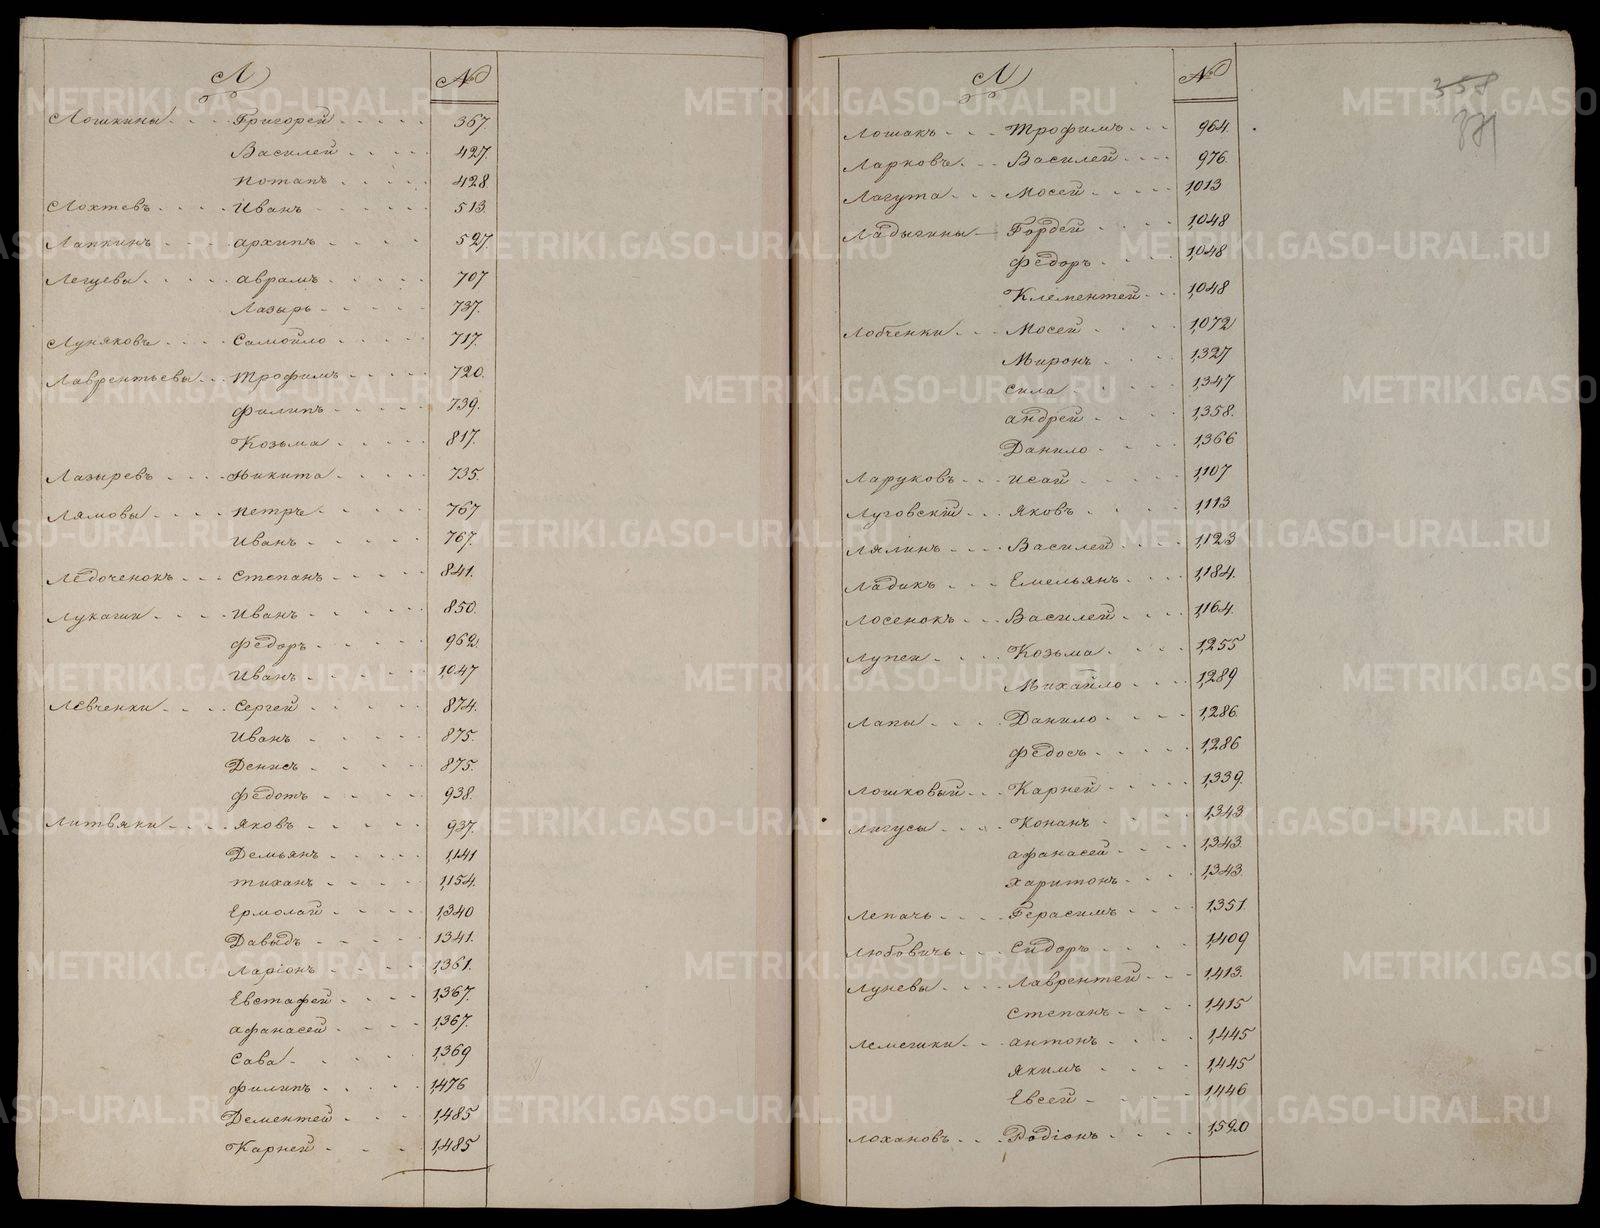 Л №
Лошкины Григорей 367.
Василей 427.
Потапъ 428.
Лохтевъ Иванъ 513.
Лапкинъ Архипъ 527.
Легцевы Аврамъ 707
Лазырь 737.
Луняковъ Самойло 717.
Лаврентьевы Трофимъ 720.
Филипъ 739.
Козьма 817.
Лазыревъ Никита 735.
Лямовы Петръ 767
Иванъ 767.
Ледоченокъ Степанъ 841.
Лукаши Иванъ 850.
Федоръ 962.
Иванъ 1,047
Левченки Сергей 874.
Иванъ 875.
Денисъ 875.
Федотъ 938.
Литвяки Яковъ 937.
Демьянъ 1,141
Тиханъ 1,154.
Ермолай 1,340
Давыдъ 1341.
Ларіонъ 1,361.
Евстафей 1,367.
Афанасей 1,367.
Сава 1,369
Филипъ 1,476
Дементей 1,485
Карней 1,485
Л №
358
Лошакъ Трофимъ 964.
Ларковъ Василей 976.
Лагута Мосей 1,013
Ладыгины Гордей 1,048
Федоръ 1,048
Клементей 1,048
Лобченки Мосей 1,072
Миронъ 1,327
Сила 1,347
Андрей 1,358.
Данило 1,366
Ларуковъ Исай 1,107
Луговскій Яковъ 1,113
Лялинъ Василей 1,123
Ладикъ Емельянъ 1,184.
Лосенокъ Василей 1,164.
Лупеи Козьма 1,255
Михайло 1,289
Лапы Данило 1,286.
Федосъ 1,286
Лошковый Карней 1,339.
Лигусы Конанъ 1,343.
Афанасей 1,343.
Харитонъ 1,343.
Лепачь Герасимъ 1,351.
Любовичь Сидоръ 1,409
Луневы Лаврентей 1,413.
Степанъ 1,415
Лемешки Антонъ 1,445
Якимъ 1,445
Евсей 1,446
Лохановъ Родіонъ 1,520
METRIKI.GASO-URAL.RU